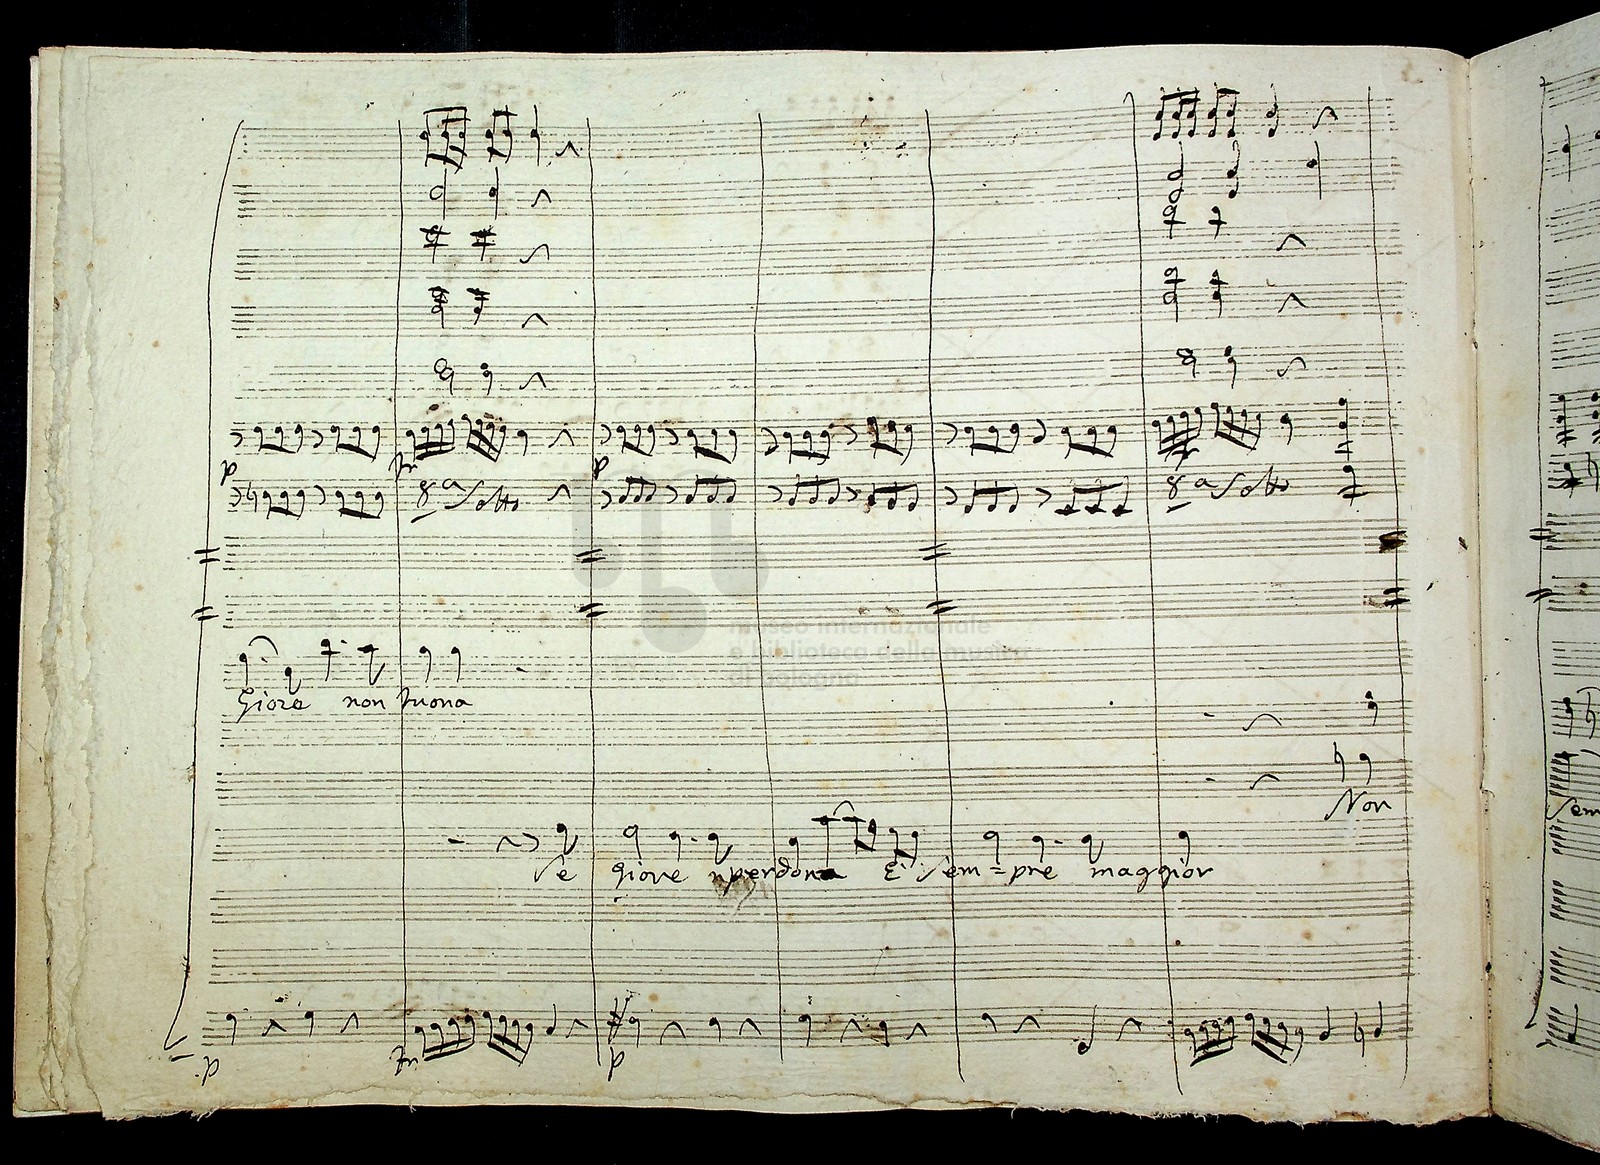 p f p
8ª Sotto 8ª Sotto
museo internazionale
e biblioteca della musica
di bologna
Giove non tuona
Non
Sem
Se Giove perdona È Sem=pre maggior
p f p